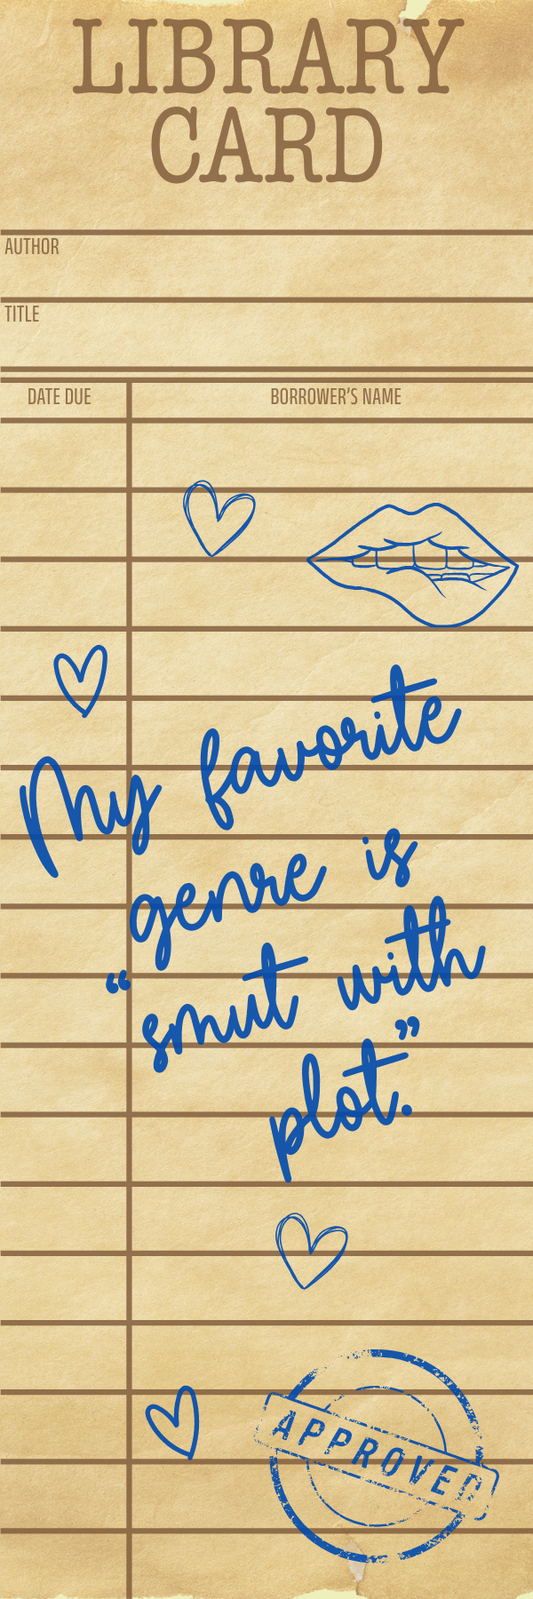 LIBRARY
CARD
AUTHOR
TITLE
DATE DUE BORROWER'S NAME
My favorite
genre is
“smut with
plot.”
APPROVED